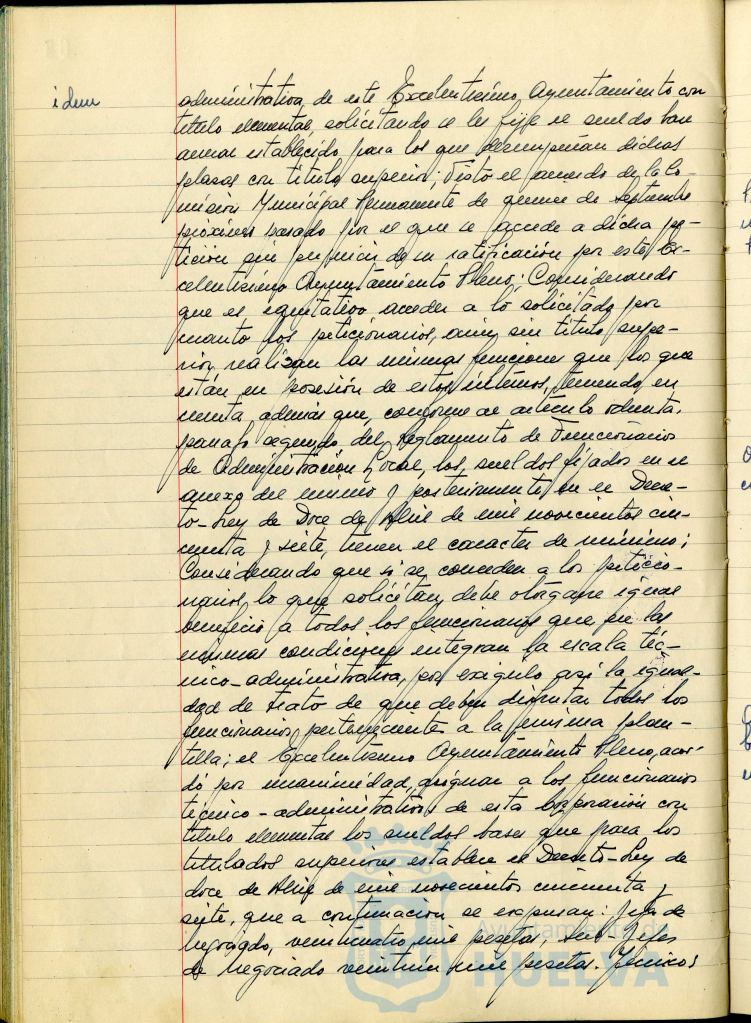 idem
administrativa de este Excelentísimo Ayuntamiento con
título elemental, solicitando se les fije el sueldo base
anual establecido para los que desempeñan dichas
plazas con título superior; Visto el acuerdo de la Co-
misión Municipal Permanente de quince de Septiembre
próximo pasado por el que se accede a dicha pe-
tición sin perjuicio de su ratificación por este Ex-
celentísimo Ayuntamiento Pleno; Considerando
que es equitativo acceder a lo solicitado por
cuanto los peticionarios, aún sin título supe-
rior realizan las mismas funciones que los que
están en posesión de estos últimos, teniendo en
cuenta además que, conforme al artículo ochenta,
párrafo segundo del Reglamento de Funcionarios
de Administración Local, los sueldos fijados en el
anexo del mismo y posteriormente en el Decre-
to-Ley de Doce de Abril de mil novecientos cin-
cuenta y siete, tienen el carácter de mínimo;
Considerando que si se conceden a los peticio-
narios lo que solicitan debe otorgarse igual
beneficio a todos los funcionarios que en las
mismas condiciones integran la escala téc-
nico-administrativa, por exigirlo así la igual-
dad de trato de que deben disfrutar todos los
funcionarios pertenecientes a la misma plan-
tilla; el Excelentísimo Ayuntamiento Pleno, acor-
dó por unanimidad, asignar a los funcionarios
técnico-administrativos de esta Corporación con
título elemental los sueldos bases que para los
titulados superiores establece el Decreto-Ley de
doce de Abril de mil novecientos cincuenta y
siete, que a continuación se expresan: Jefes de
Negociado, veinticuatro mil pesetas, Sub-Jefes
de Negociado veintiún mil pesetas. Técnicos
Ayuntamiento de
HUELVA